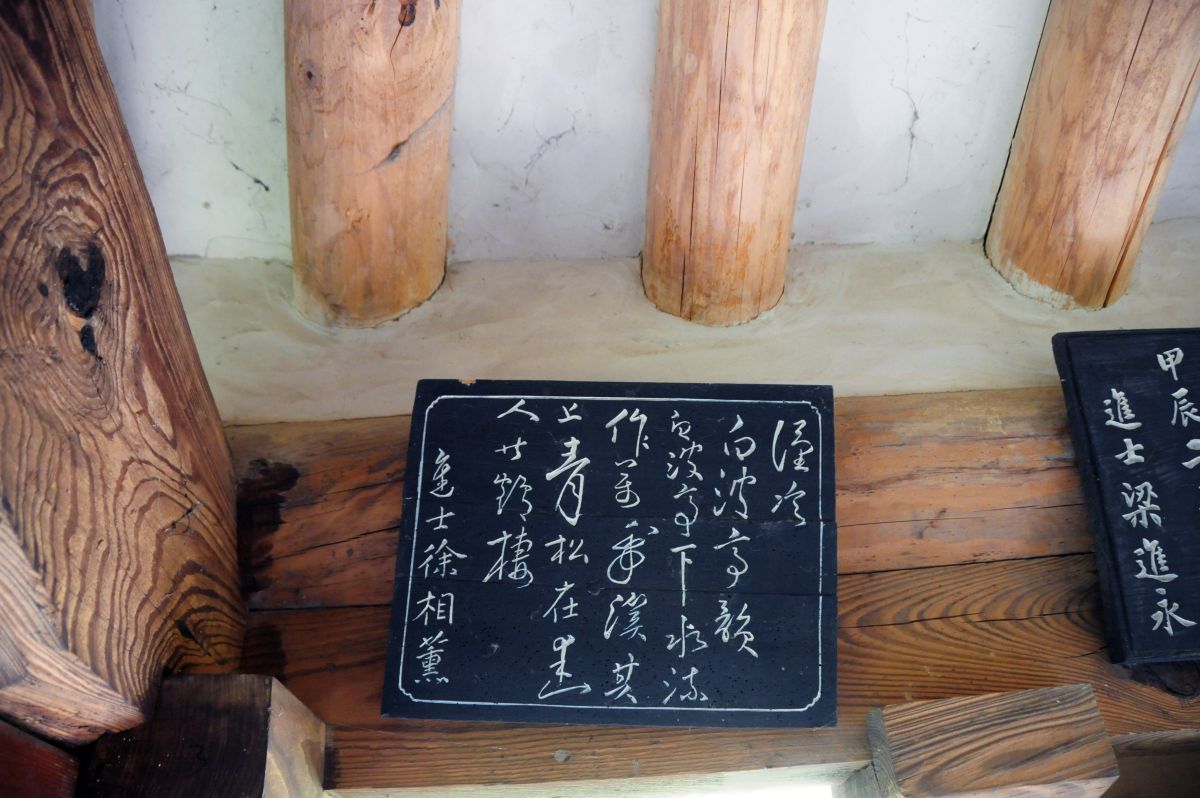 甲辰二
進士梁進永
謹次
白波亭韻
白波亭下水流
作溪其
上青松在
人鶴棲
進士徐相薰